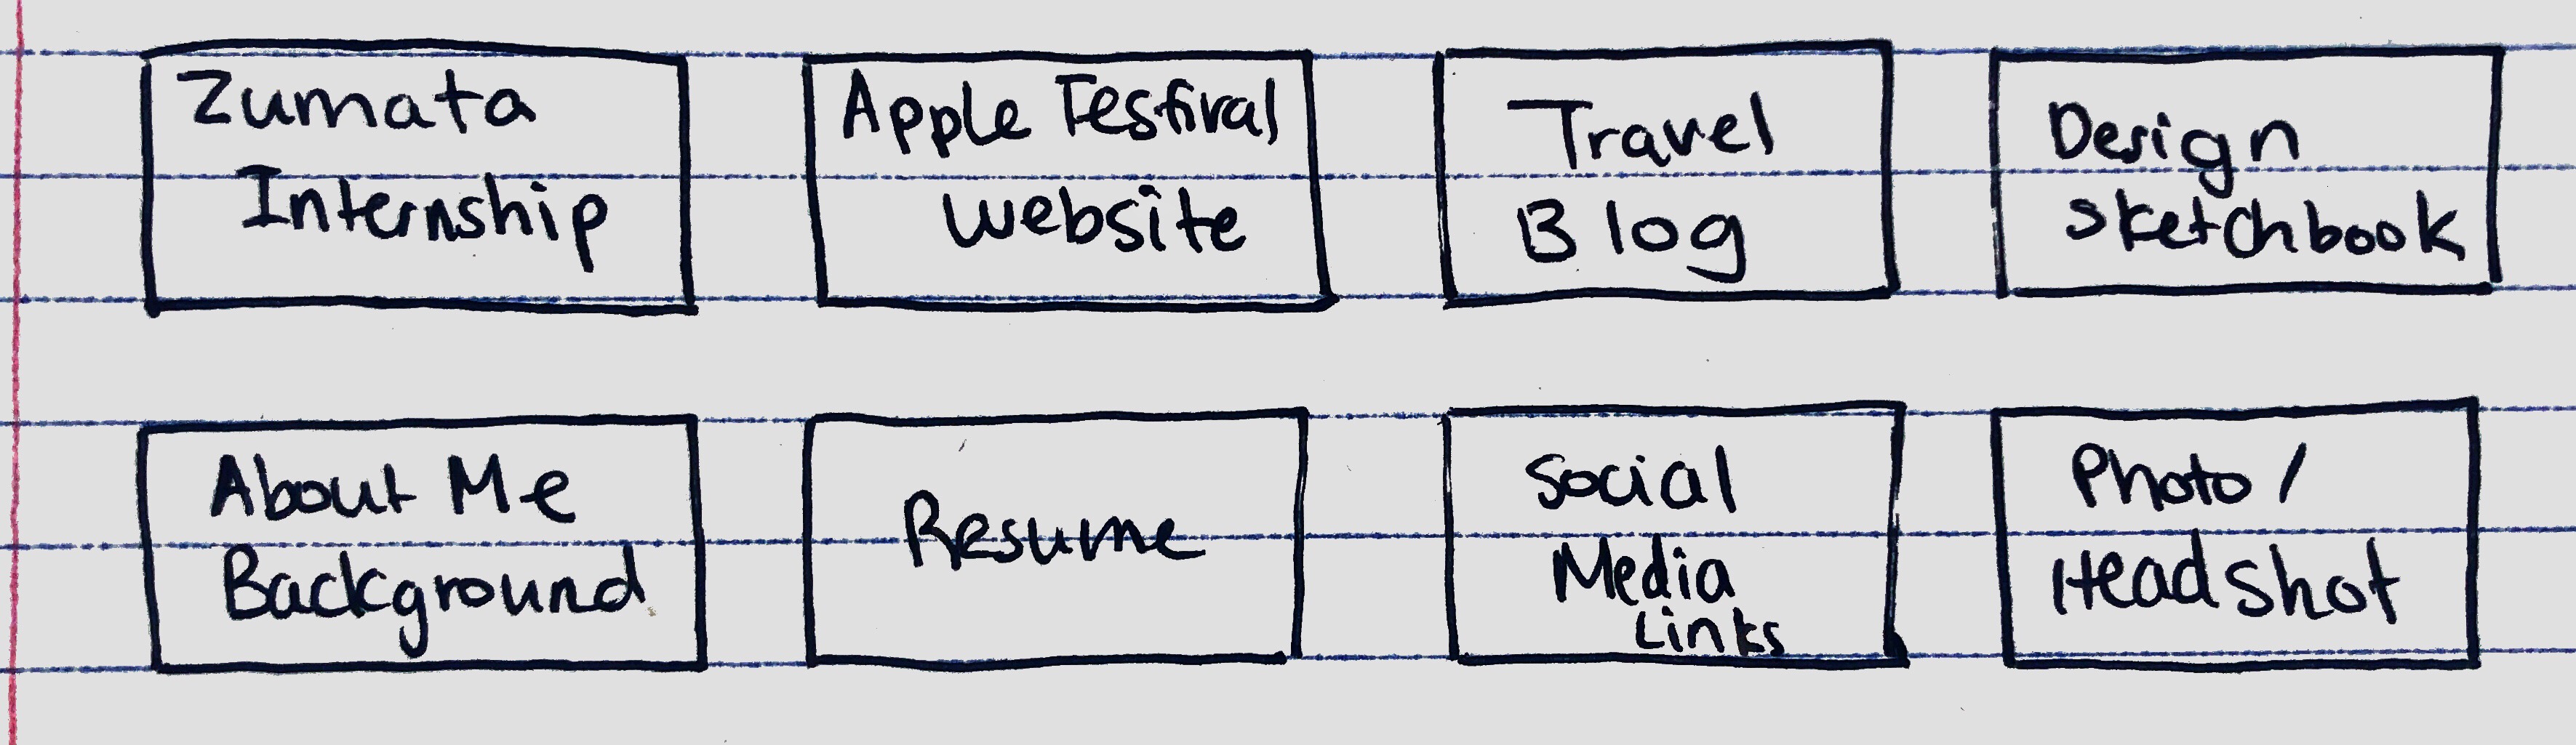 Zumata
Internship
Apple Festival
Website
Travel
Blog
Design
Sketchbook
About Me
Background
Resume
Social
Media
Links
Photo/
Headshot